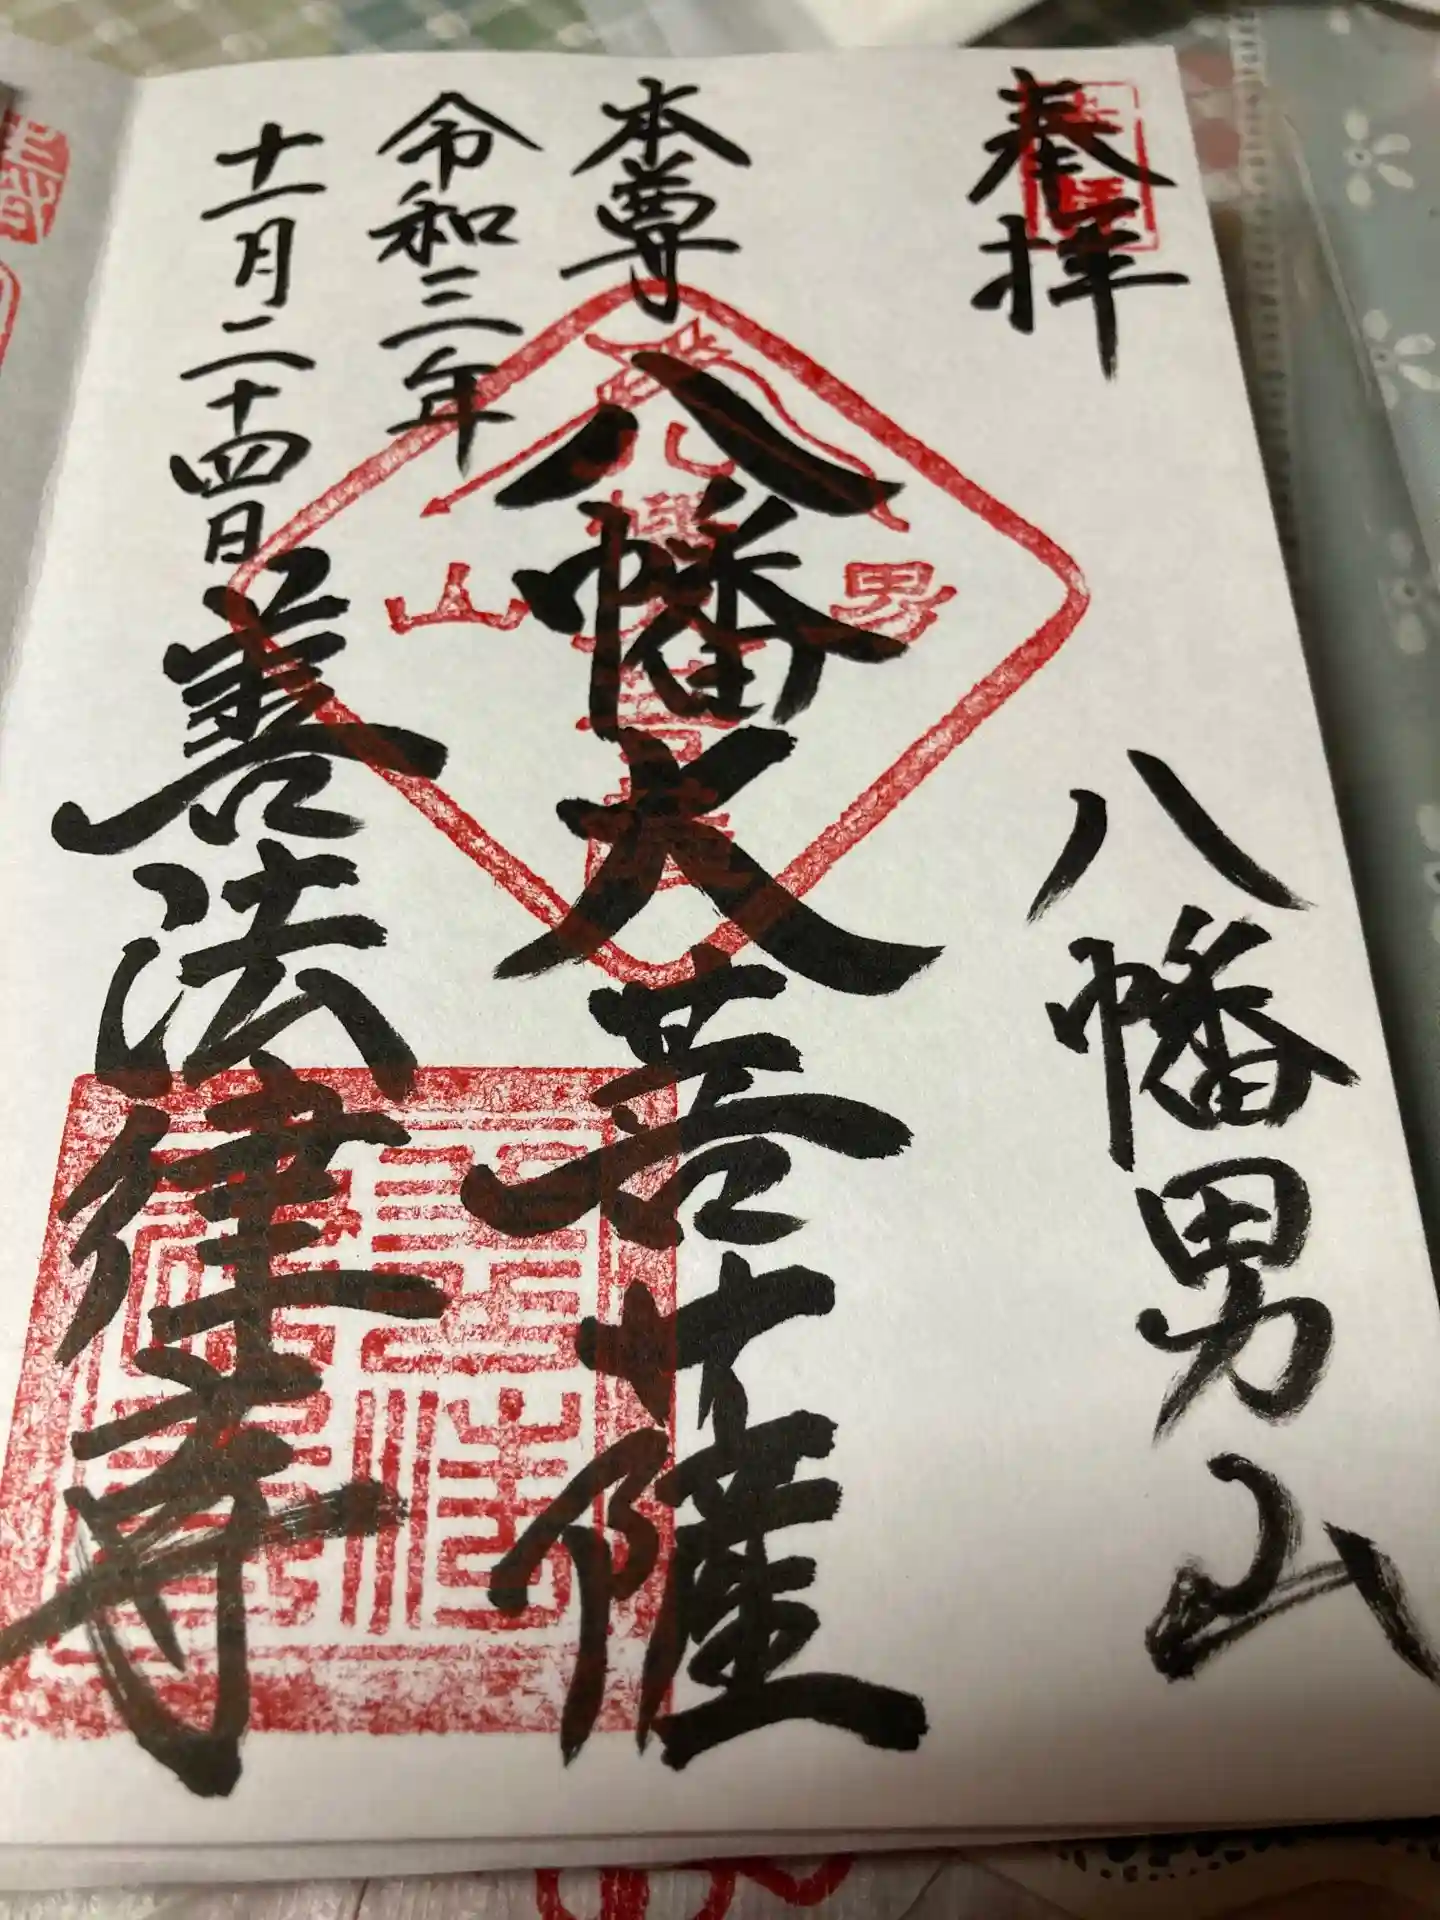 奉拝
八幡男山
本尊
八幡大菩薩
令和三年
十一月二十四日
善法律寺
男
山